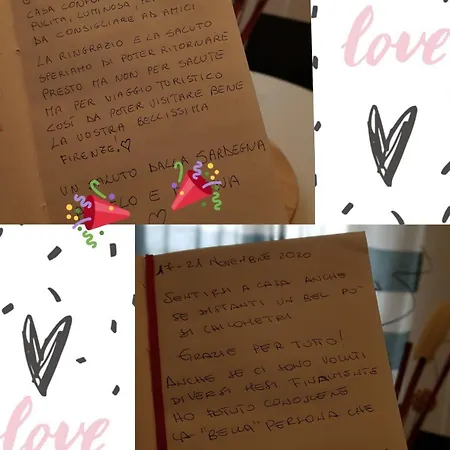 CASA
PULITA, LUMINOSA,
DA CONSIGLIARE AD AMICI
LA RINGRAZIO E LA SALUTO
SPERIAMO DI POTER RITORNARE
PRESTO MA NON PER SALUTE
MA PER VIAGGIO TURISTICO
COSÌ DA POTER VISITARE BENE
LA VOSTRA BELLISSIMA
FIRENZE!
UN SALUTO DALLA SARDEGNA
LO E
love
17-21 NOVEMBRE 2020
SENTIRSI A CASA ANCHE
SE DISTANTI UN BEL PO'
DI CHILOMETRI
GRAZIE PER TUTTO!
ANCHE SE CI SONO VOLUTI
DIVERSI MESI FINALMENTE
HO POTUTO CONOSCERE
LA "BELLA" PERSONA CHE
love